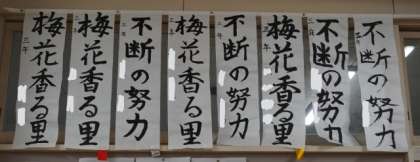 梅花香る里
梅花香る里
不断の努力
梅花香る里
不断の努力
梅花香る里
不断の努力
不断の努力